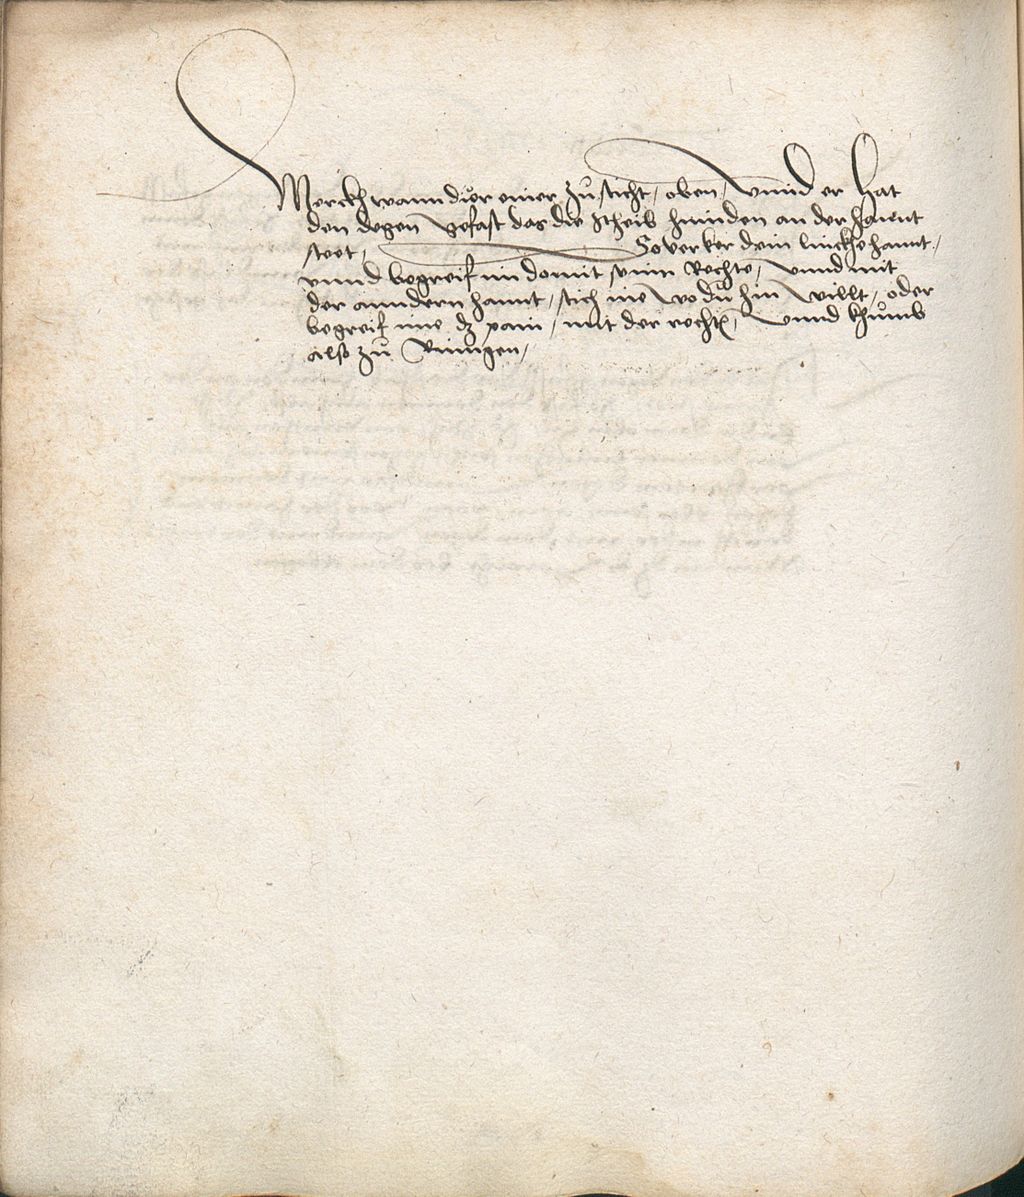 Merckh wann dier einer zů sticht, oben, vnnd er hat
den degen gefast das die scheib hinnden an der hannt
steet, So verker dein linckhe hannt,
vnnd begreif im domit sein Rechte, vnnd mit
der anndern hannt, stich ine wo dů hin willt, oder
begreif ime dz pain, mit der recht, vnnd khůmb
also zů Ringen,